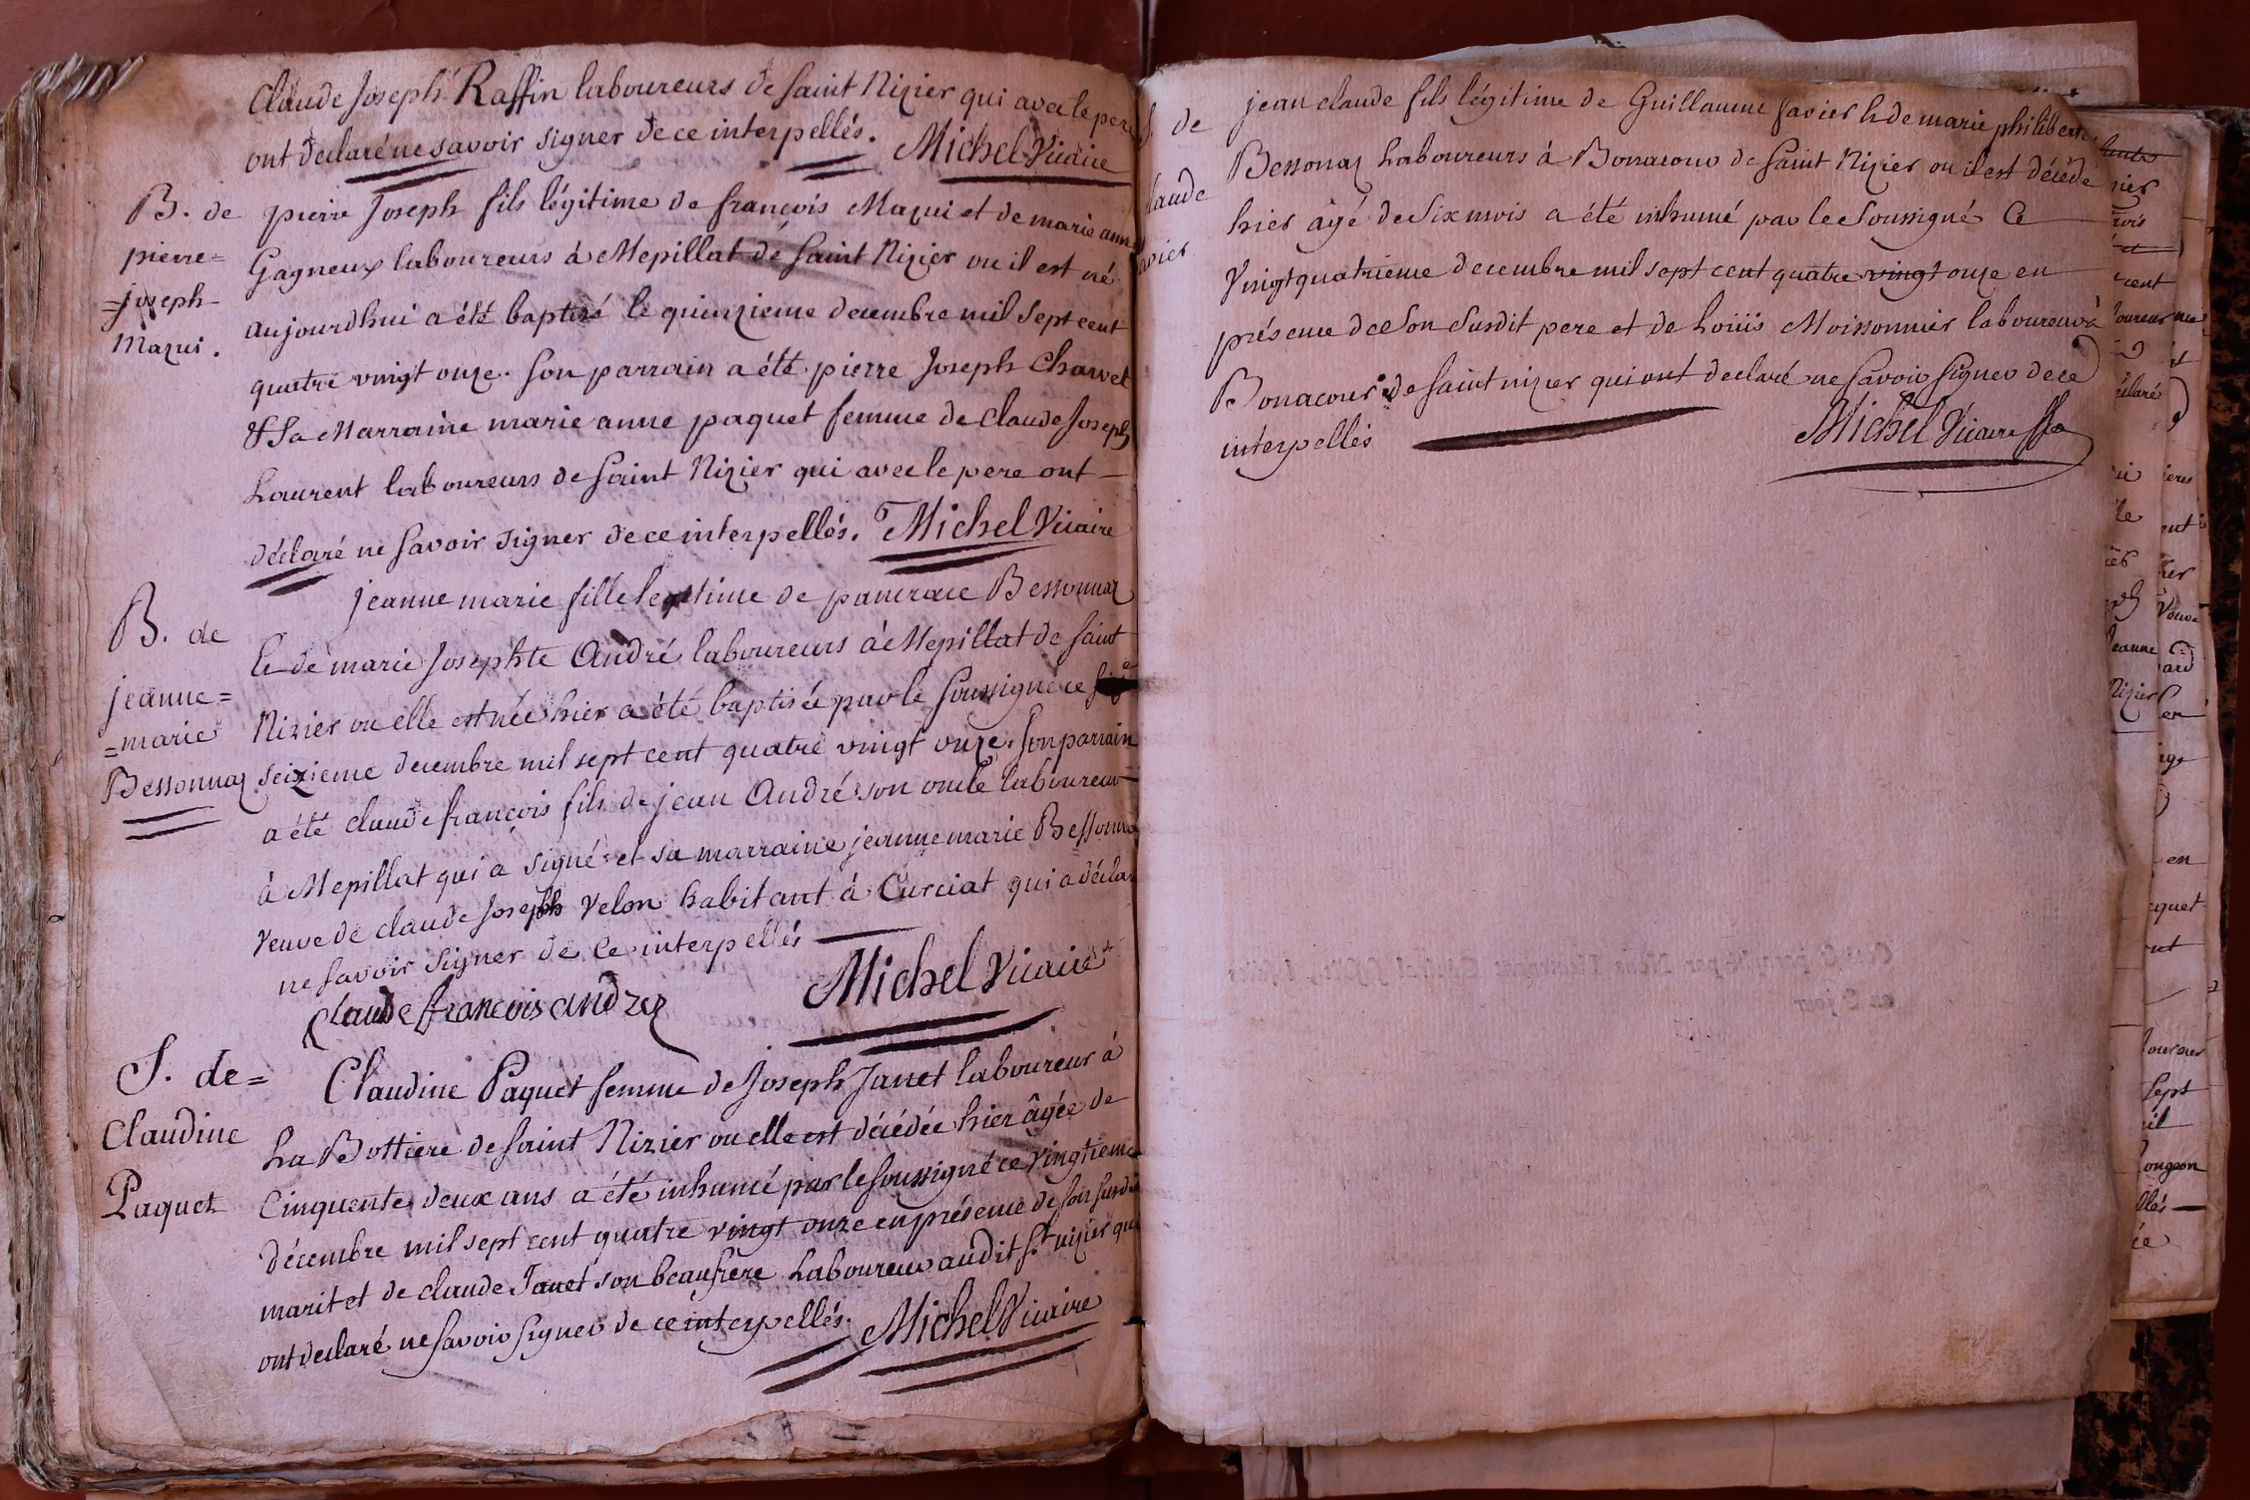 Claude Joseph Raffin laboureurs de saint Nizier qui avec le pere
ont declaré ne savoir signer de ce interpellés. Michel Vicaire
B. de
pierre=
=joseph
Mazui.
pierre Joseph fils légitime de françois Mazui et de marie anne
Gagneux laboureurs à Mepillat de saint Nizier ou il est né
aujourdhui a été baptisé le quinzieme decembre mil sept cent
quatre vingt onze. son parrain a été pierre Joseph Charvet
& sa Marraine marie anne paquet femme de Claude Joseph
Laurent laboureurs de saint Nizier qui avec le pere ont
déclaré ne savoir signer de ce interpellés. Michel Vicaire
B. de
jeanne=
=marie
Bessonnaz
jeanne marie fille legitime de pancrace Bessonnaz
& de marie Josephte André laboureurs à Mepillat de saint
Nizier ou elle est née hier a été baptisée par le soussigné ce
seizieme decembre mil sept cent quatre vingt onze. son parrain
a été claude françois fils de jean André son oncle laboureur
à Mepillat qui a signé et sa marraine jeanne marie
veuve de claude Joseph Velon habitant à Curciat qui a
ne savoir signer de ce interpellés
Claude francois andrez Michel Vicaire
S. de=
Claudine
Paquet
Claudine Paquet femme de Joseph Janet laboureur à
La Bottiere de saint Nizier ou elle est décédée hier âgée de
Cinquante deux ans a été inhumé par le soussigné ce vingtieme
décembre mil sept cent quatre vingt onze en présence de son
marit et de claude Janet son beaufrere Laboureur audit St nizier qui
ont declaré ne savoir signer de ce interpellés. Michel Vicaire
S. de
jean claude fils légitime de Guillaume favier & de marie philiberte
Bessonaz Laboureurs à Bonacour de saint Nizier ou il est décédé
hier âgé de six mois a été inhumé par le soussigné Ce
Vingt quatrieme decembre mil sept cent quatre vingt onze en
présence de son susdit pere et de Loüis Moissonnier laboureur à
Bonacour de saint nizier qui ont declaré ne savoir signer de ce
interpellés Michel Vicaire